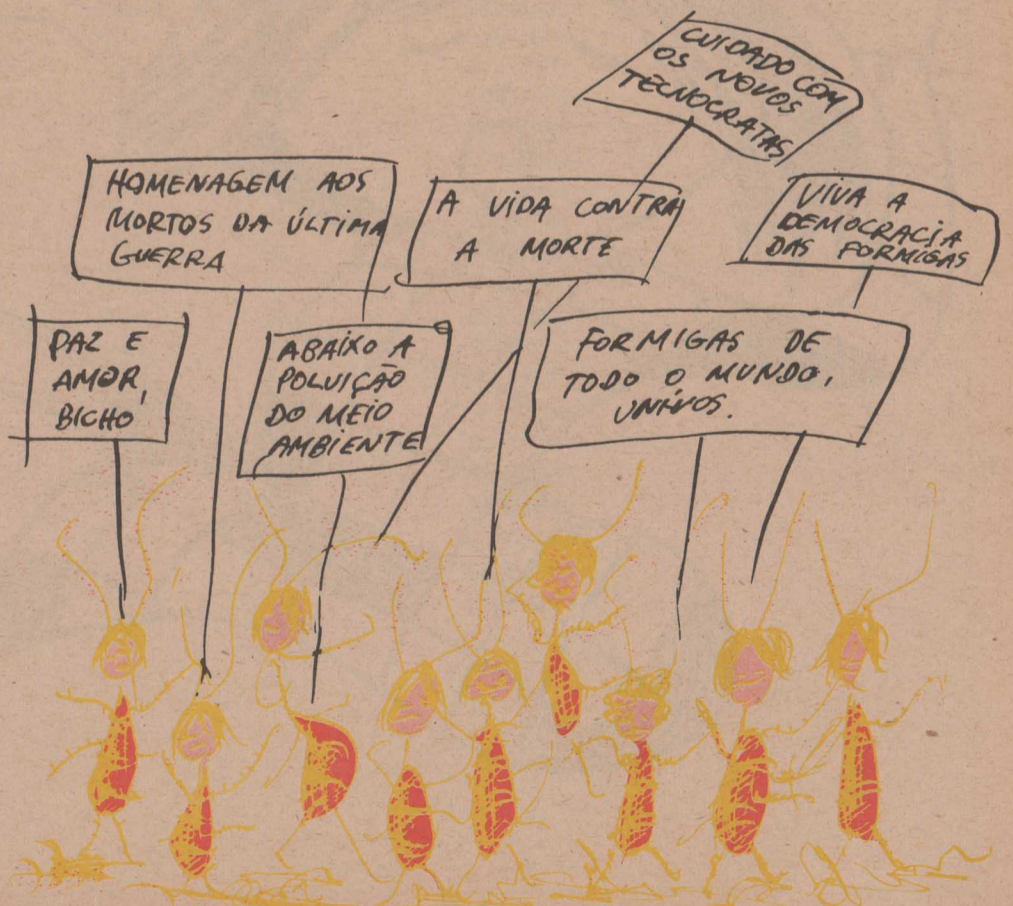 CUIDADO COM
OS NOVOS
TECNOCRATAS
HOMENAGEM AOS
MORTOS DA ÚLTIMA
GUERRA
A VIDA CONTRA
A MORTE
VIVA A
DEMOCRACIA
DAS FORMIGAS
PAZ E
AMOR,
BICHO
ABAIXO A
POLUIÇÃO
DO MEIO
AMBIENTE
FORMIGAS DE
TODO O MUNDO,
UNÍVOS.